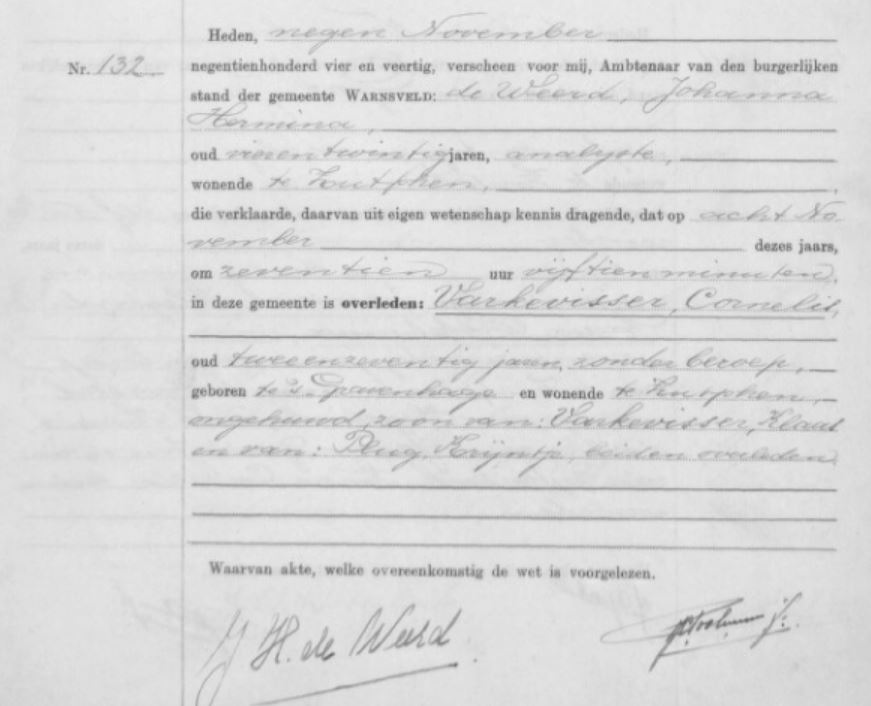 Heden, negen November
Nr. 132 negentienhonderd vier en veertig, verscheen voor mij, Ambtenaar van den burgerlijken
stand der gemeente WARNSVELD: de Weerd, Johanna
Hermina,
oud vierentwintig jaren, analyste,
wonende te Zutphen,
die verklaarde, daarvan uit eigen wetenschap kennis dragende, dat op acht No-
vember dezes jaars,
om zeventien uur vijftien minuten,
in deze gemeente is overleden: Varkevisser, Cornelis,
oud tweeenzeventig jaren, zonder beroep,
geboren te 's Gravenhage en wonende te Zutphen,
ongehuwd, zoon van: Varkevisser, Klaas
en van: Plug, Krijntje, beiden overleden.
Waarvan akte, welke overeenkomstig de wet is voorgelezen.
J H. de Weerd